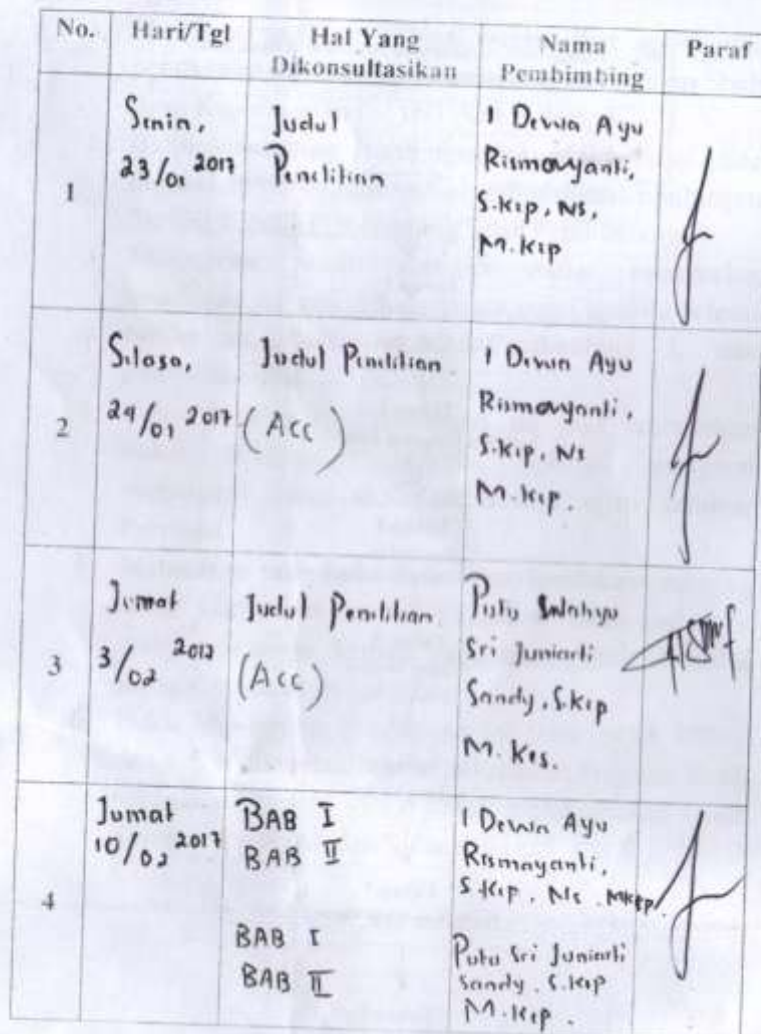 No. Hari/Tgl Hal Yang Dikonsultasikan Nama Pembimbing Paraf
1
Senin,
23/01 2017
Judul
Penelitian
I Dewa Ayu
Rismayanti,
S.Kep, Ns,
M.Kep
2
Selasa,
24/01 2017
Judul Penelitian
(Acc)
I Dewa Ayu
Rismayanti,
S.Kep, Ns
M.Kep.
3
Jumat
3/02 2017
Judul Penelitian
(Acc)
Putu
Sri Juniarti
Sandy, S.Kep
M. Kes.
4
Jumat
10/02 2017
BAB I
BAB II
BAB I
BAB II
I Dewa Ayu
Rismayanti,
S.Kep, Ns, MKep.
Putu Sri Juniarti
Sandy, S.Kep
M.Kep.